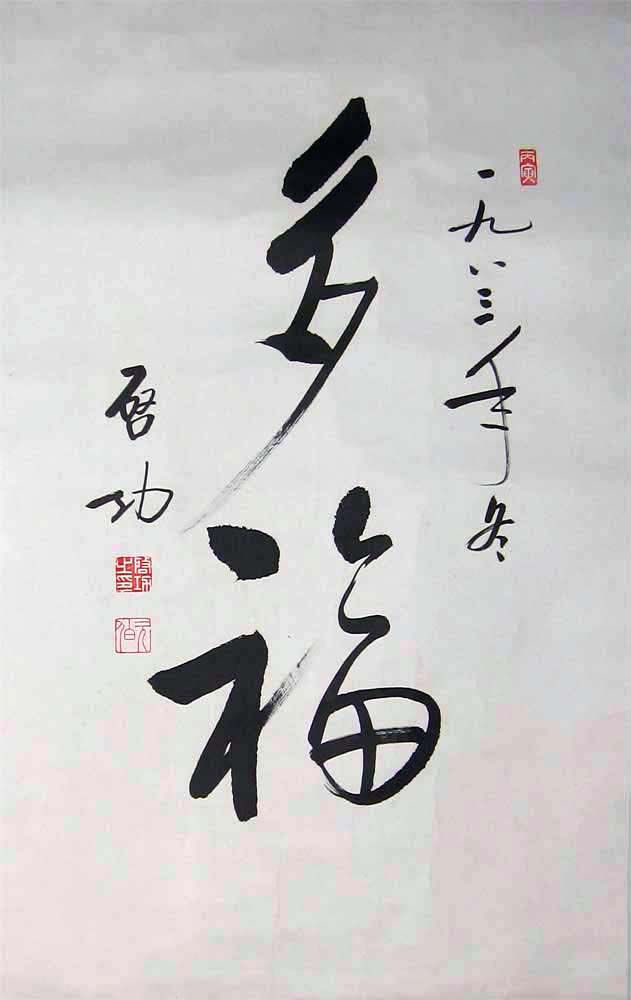 丙寅
一九八三年冬
多福
啓功
启功之印
元白